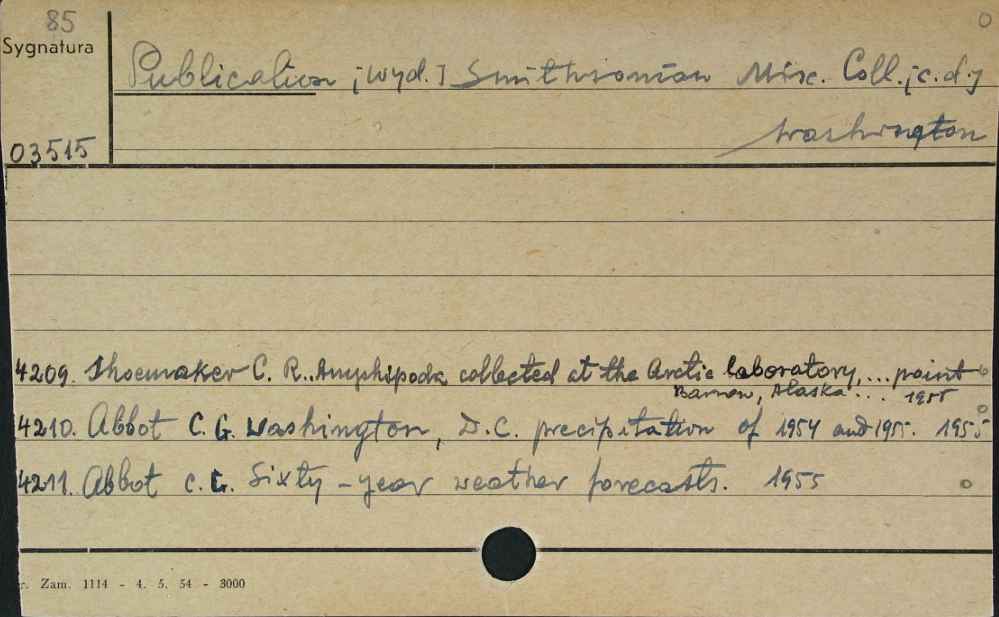 85
Sygnatura
Publication [wyd.] Smithsonian Misc. Coll. [c.d.]
Washington
03515
4209. Shoemaker C. R.. Amphipoda collected at the Arctic laboratory, ... point
Barrow, Alaska ... 1955
4210. Abbot C. G. Washington, D.C. precipitation of 1954 and 1955. 1955
4211. Abbot C. G. Sixty-year weather forecasts. 1955
r. Zam. 1114 - 4. 5. 54 - 3000